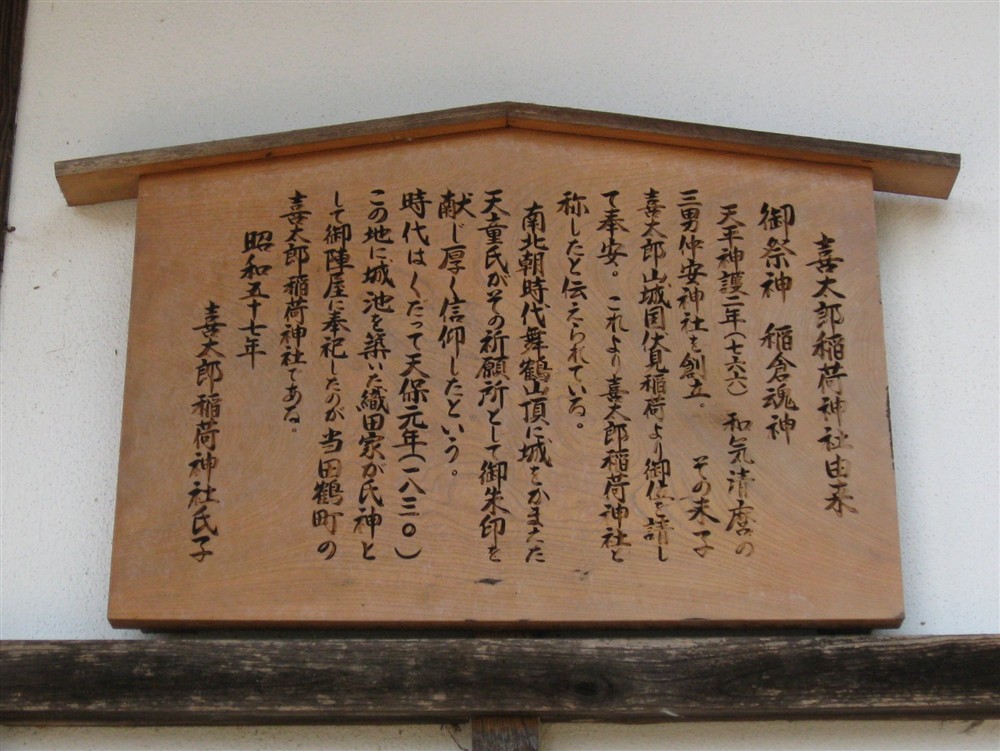 喜太郎稲荷神社由来
御祭神 稲倉魂神
天平神護二年(七六六) 和気清麿の
三男仲安神社を創立。 その末子
喜太郎山城国伏見稲荷より御位を請し
て奉安。これより喜太郎稲荷神社と
称したと伝えられている。
南北朝時代舞鶴山頂に城をかまえた
天童氏がその祈願所として御朱印を
献じ厚く信仰したという。
時代はくだって天保元年(一八三〇)
この地に城池を築いた織田家が氏神と
して御陣屋に奉祀したのが当田鶴町の
喜太郎稲荷神社である。
昭和五十七年
喜太郎稲荷神社氏子